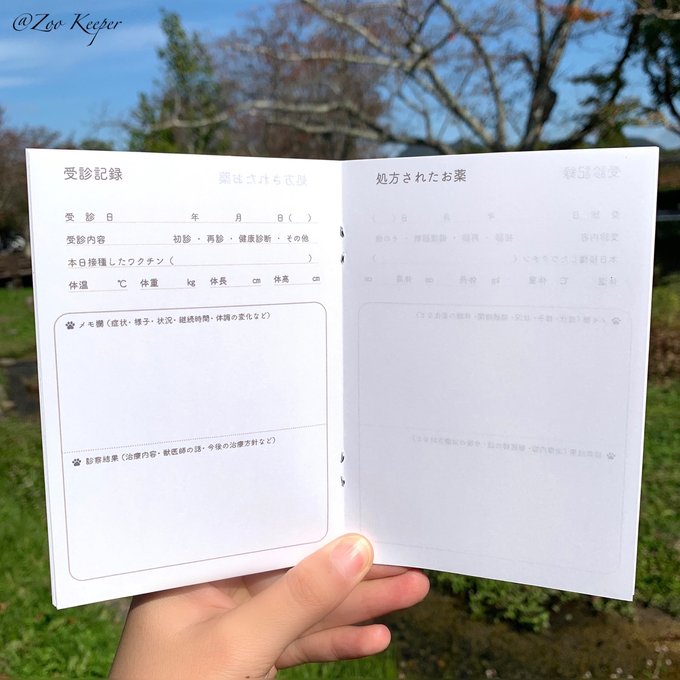 @Zoo Keeper
受診記録
受 診 日 年 月 日( )
受診内容 初診 ・ 再診 ・ 健康診断 ・ その他
本日接種したワクチン ( )
体温 ℃ 体重 kg 体長 cm 体高 cm
メモ欄 (症状・様子・状況・継続時間・体調の変化など)
診察結果 (治療内容・獣医師の話・今後の治療方針など)
処方されたお薬